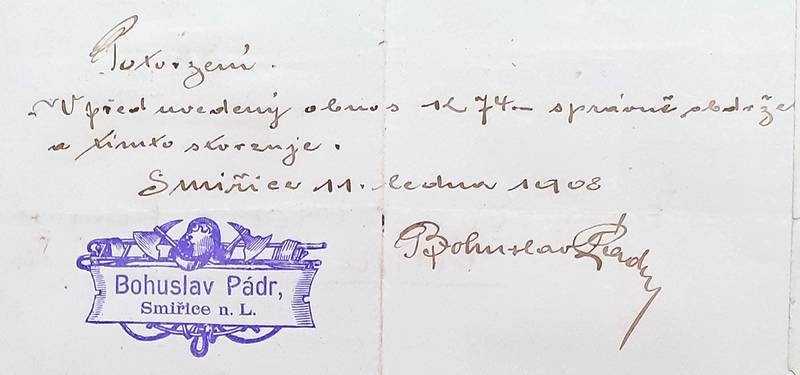 Potvrzení.
V před uvedený obnos K 74– správně obdrže
a tímto stvrzuje.
Smiřice 11. ledna 1908
Bohuslav Pádr
Bohuslav Pádr,
Smiřice n. L.